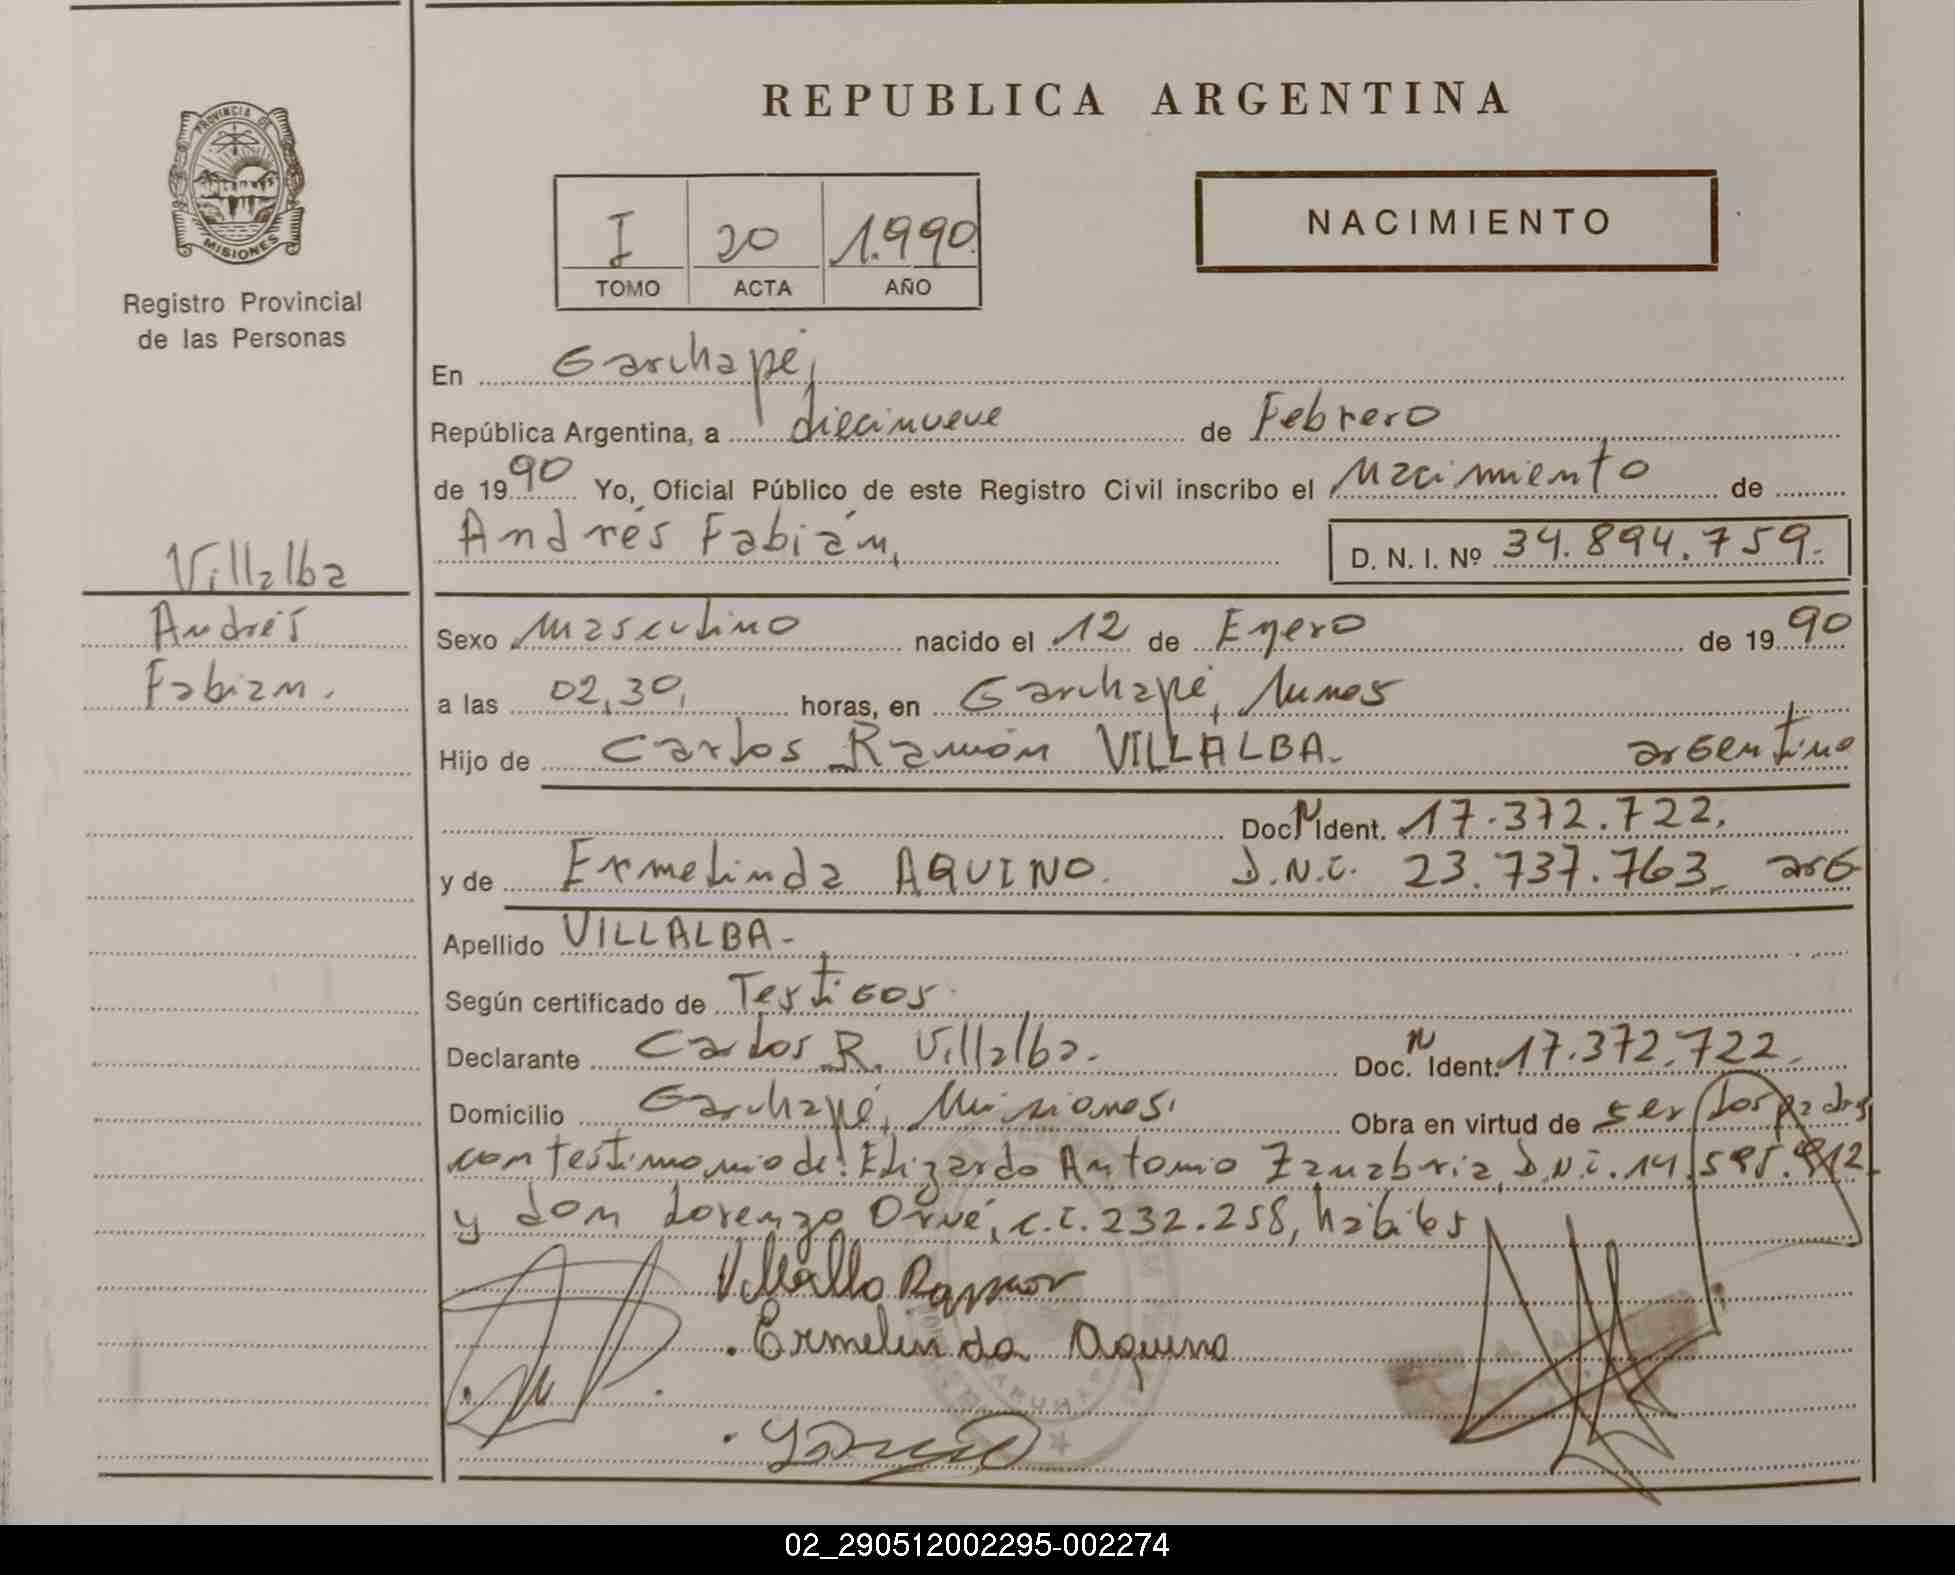 PROVINCIA DE
MISIONES
Registro Provincial
de las Personas
Villalba
Andrés
Fabian.
REPUBLICA ARGENTINA
I 20 1.990
TOMO ACTA AÑO
NACIMIENTO
En Garuhapé,
República Argentina, a diecinueve de Febrero
de 1990 Yo, Oficial Público de este Registro Civil inscribo el Nacimiento de
Andrés Fabián, D. N. I. Nº 34.894.759.
Sexo Masculino nacido el 12 de Enero de 1990
a las 02,30, horas, en Garuhapé,
Hijo de Carlos Ramón VILLALBA. argentino
Doc. N Ident. 17.372.722.
y de Ermelinda AQUINO. D.N.I. 23.737.763 arg
Apellido VILLALBA-
Según certificado de Testigos.
Declarante Carlos R. Villalba. Doc. N Ident. 17.372.722.
Domicilio Garuhapé, Misiones, Obra en virtud de ser los padres
con testimonio de: Elizardo Antonio Zanabria, D.N.I. 14.595.912
y don Lorenzo Orué, c.i. 232.258, hábiles
Villalba Ramon
Ermelinda Aquino
02_290512002295-002274